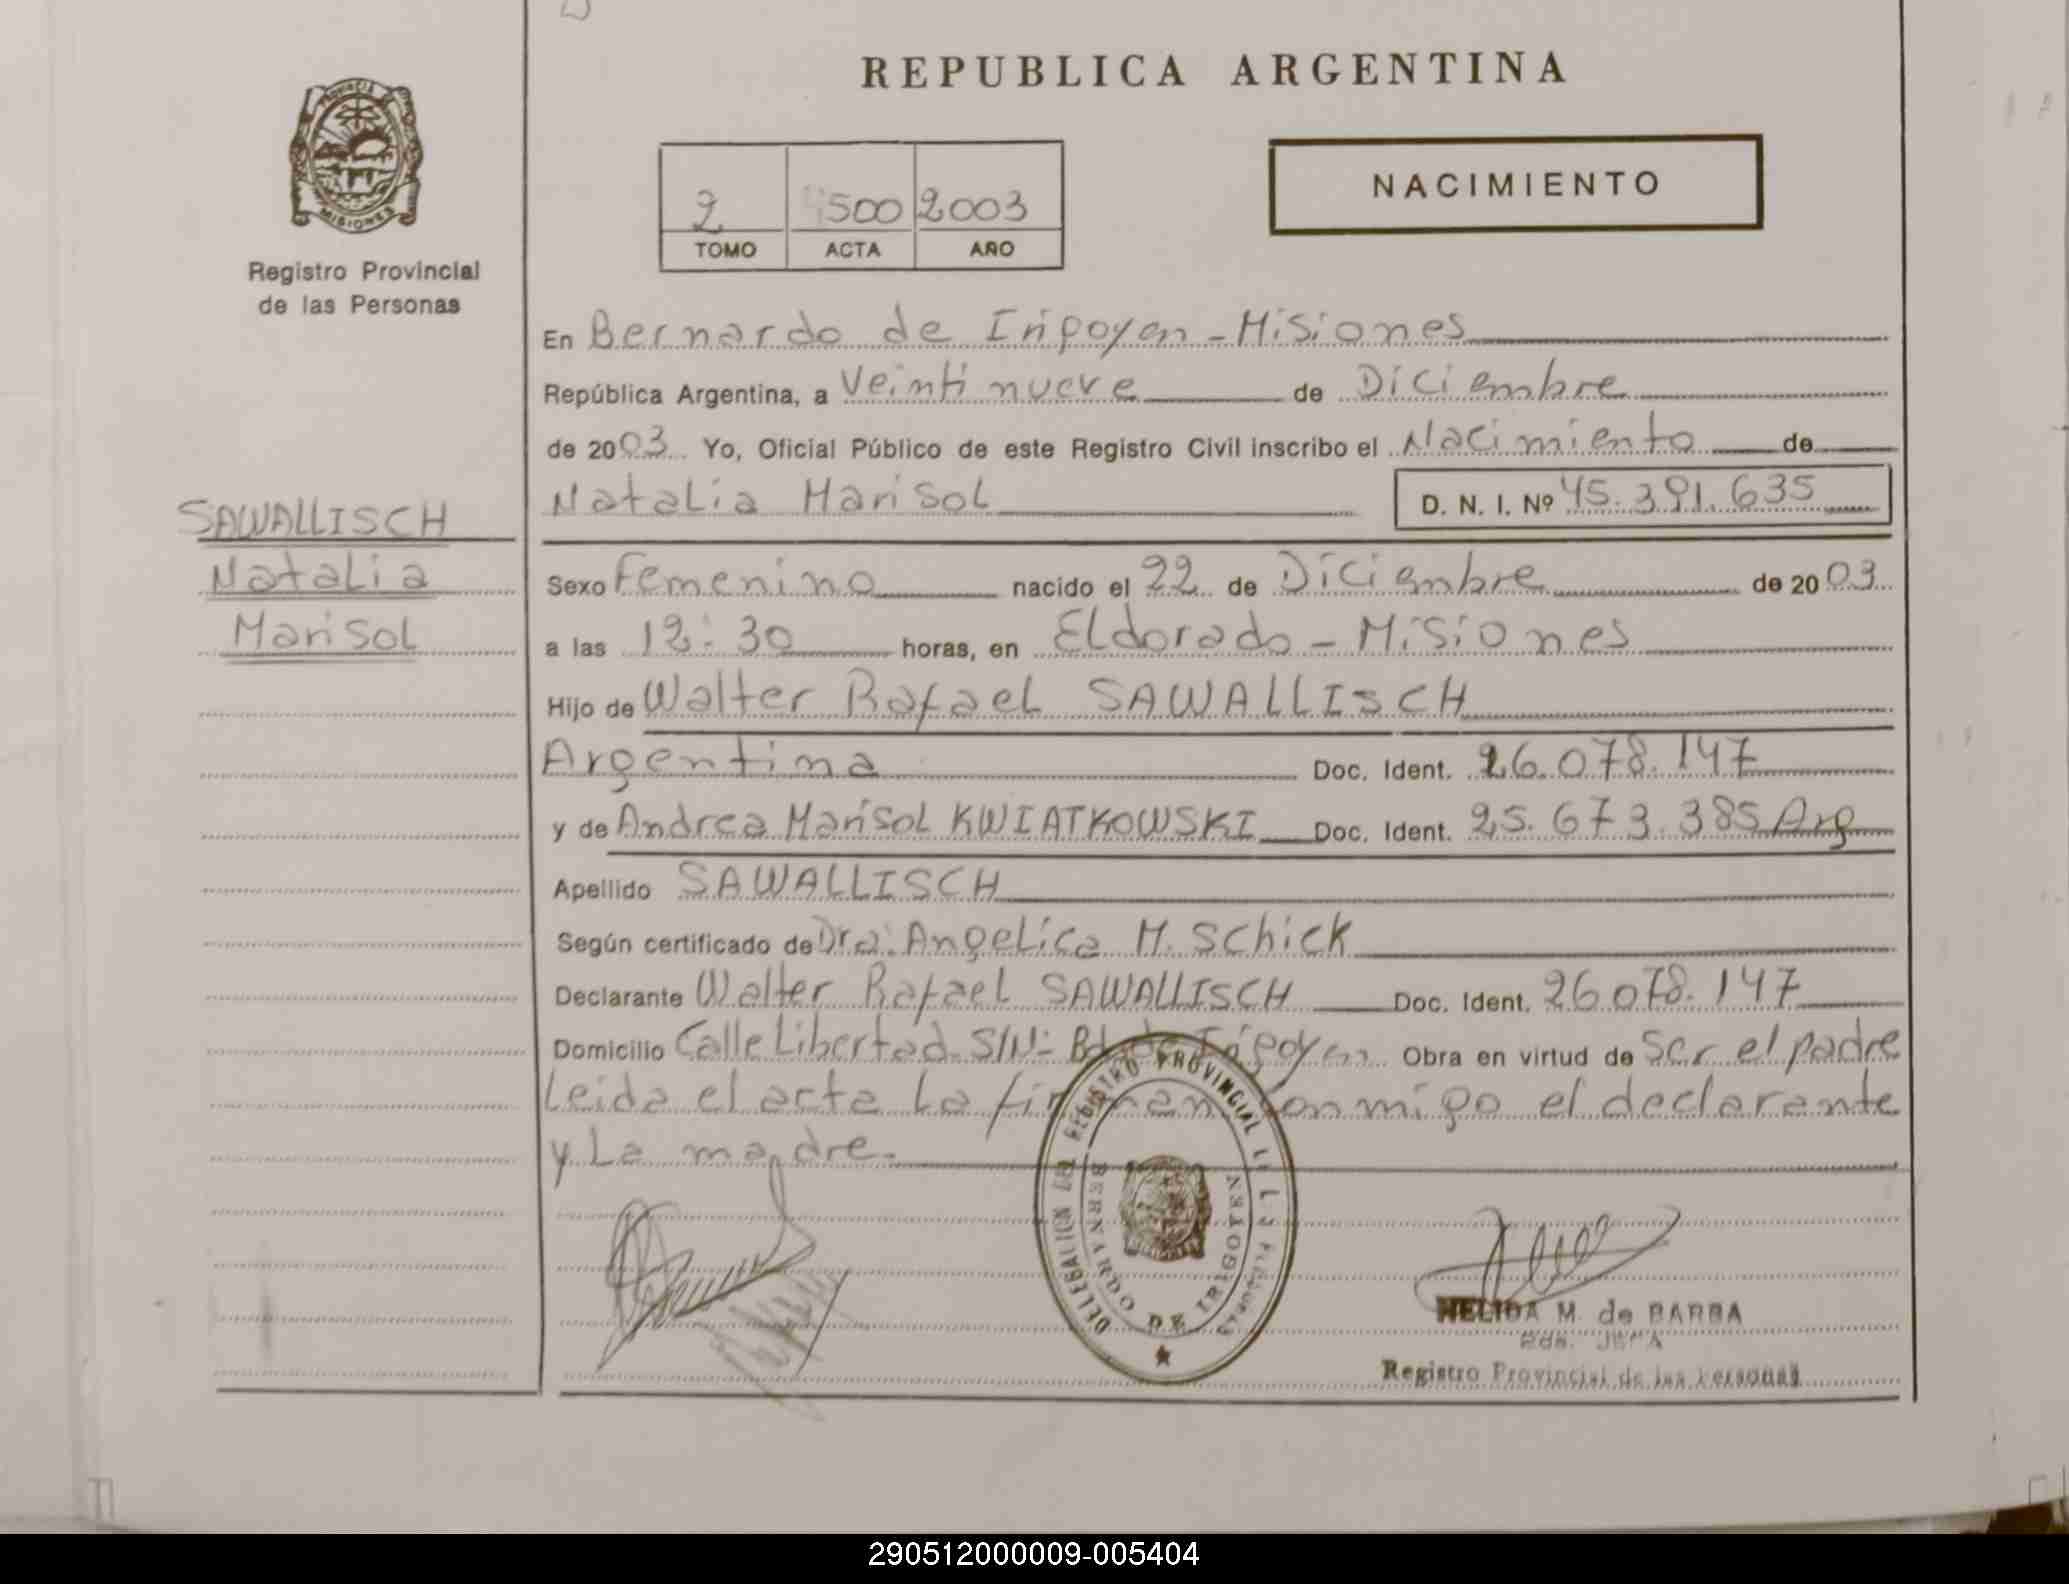 REPUBLICA ARGENTINA
PROVINCIA DE
MISIONES
Registro Provincial
de las Personas
2 500 2003
TOMO ACTA AÑO
NACIMIENTO
En Bernardo de Irigoyen - Misiones
República Argentina, a Veintinueve de Diciembre
de 2003. Yo, Oficial Público de este Registro Civil inscribo el Nacimiento de
Natalia Marisol D. N. I. Nº 45.391.635
SAWALLISCH
Natalia
Marisol
Sexo Femenino nacido el 22 de Diciembre de 2003
a las 12:30 horas, en Eldorado - Misiones
Hijo de Walter Rafael SAWALLISCH
Argentina Doc. Ident. 26.078.147
y de Andrea Marisol KWIATKOWSKI Doc. Ident. 25.673.385 Arg
Apellido SAWALLISCH
Según certificado de Dra. Angelica M. Schick
Declarante Walter Rafael SAWALLISCH Doc. Ident. 26.078.147
Domicilio Calle Libertad S/N- Bdo de Irigoyen Obra en virtud de Ser el padre
Leida el acta la firman conmigo el declarante
y La madre.-
DELEGACION DEL REGISTRO PROVINCIAL DE LAS PERSONAS
BERNARDO DE IRIGOYEN
NELIDA M. de BARBA
JEFA
Registro Provincial de las Personas
290512000009-005404